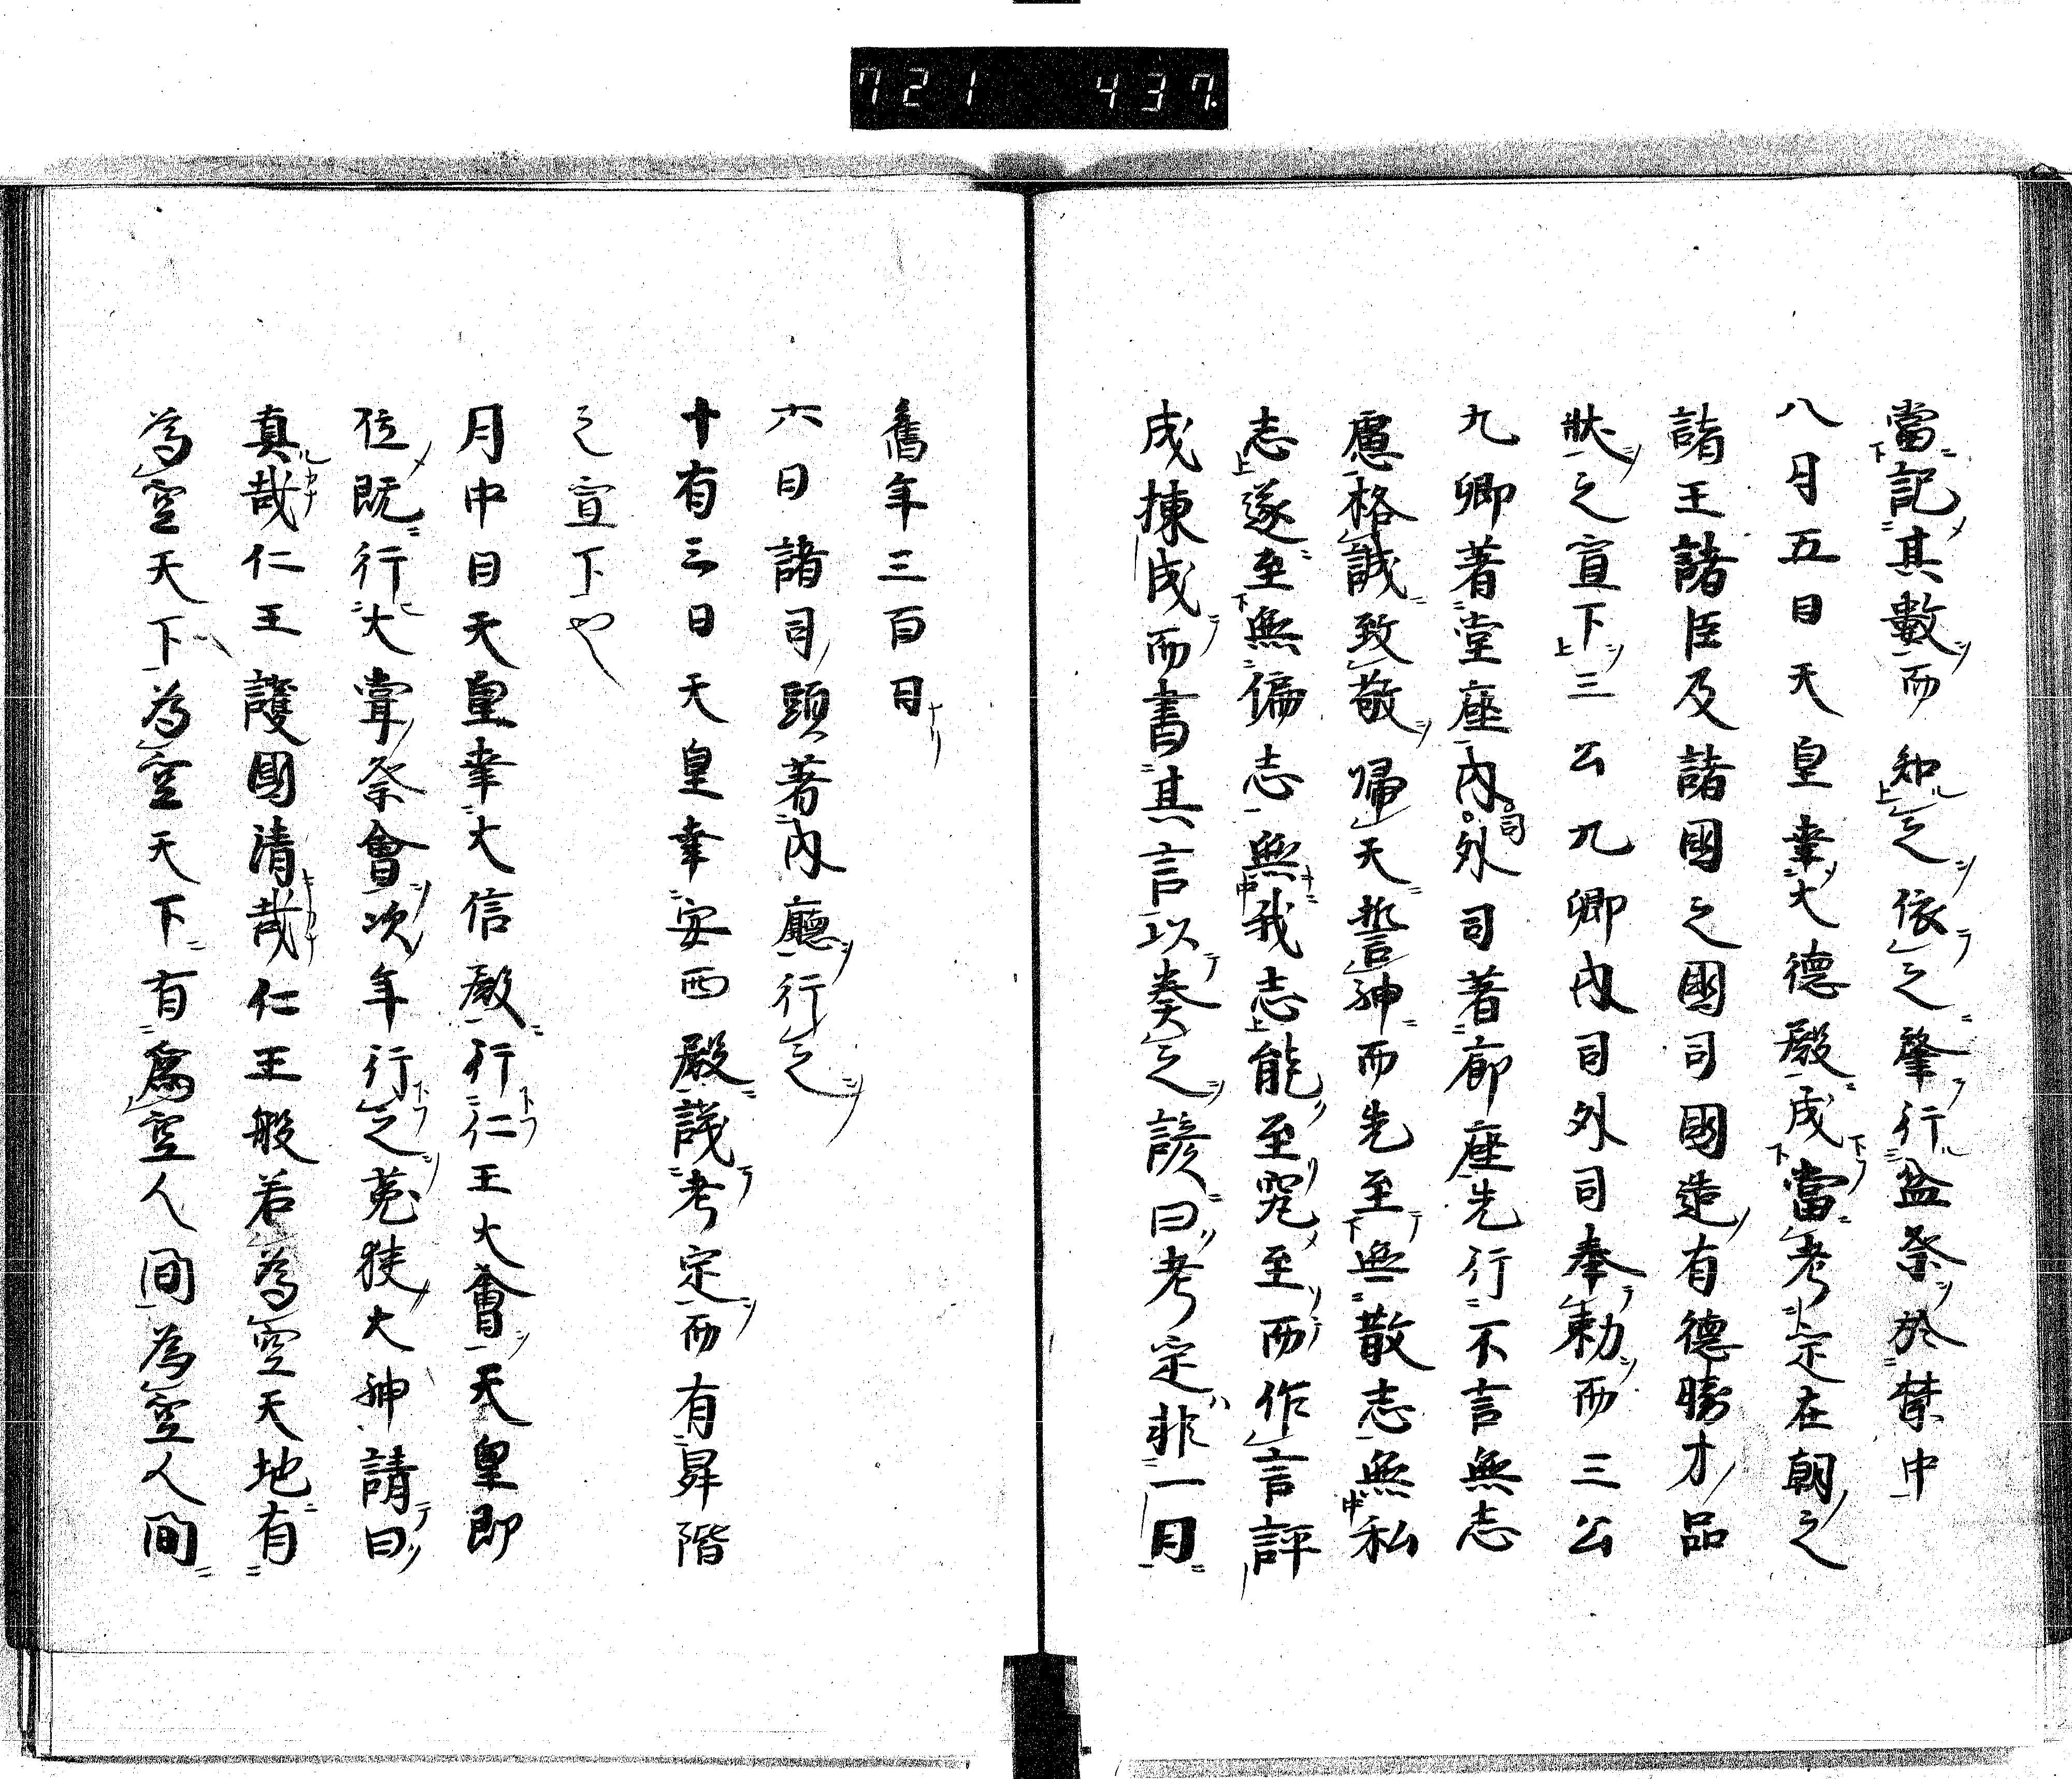 721 437.
當記其數而知之依之肇行盆祭於禁中
八月五日天皇幸大德殿成當考定在朝之
諸王諸臣及諸國之國司國造有德勝才品
狀之宣下三公九卿內司外司奉勅而三公
九卿著堂座內司外司著廊座先行不言無志
慮格誠致敬帰天誓神而先至無散志無私
志遂至無偏志無我志能至究至而作言評
成揀成而書其言以奏之諺曰考定非一日
舊年三百日
六日諸司頭著內廳行之
十有三日天皇幸安西殿議考定而有昇階
之宣下也
月中日天皇幸大信殿行仁王大會天皇即
位既行大嘗祭會次年行之菟狹大神請曰
真哉仁王護國清哉仁王般若為空天地有
為空天下為空天下有為空人間為空人間